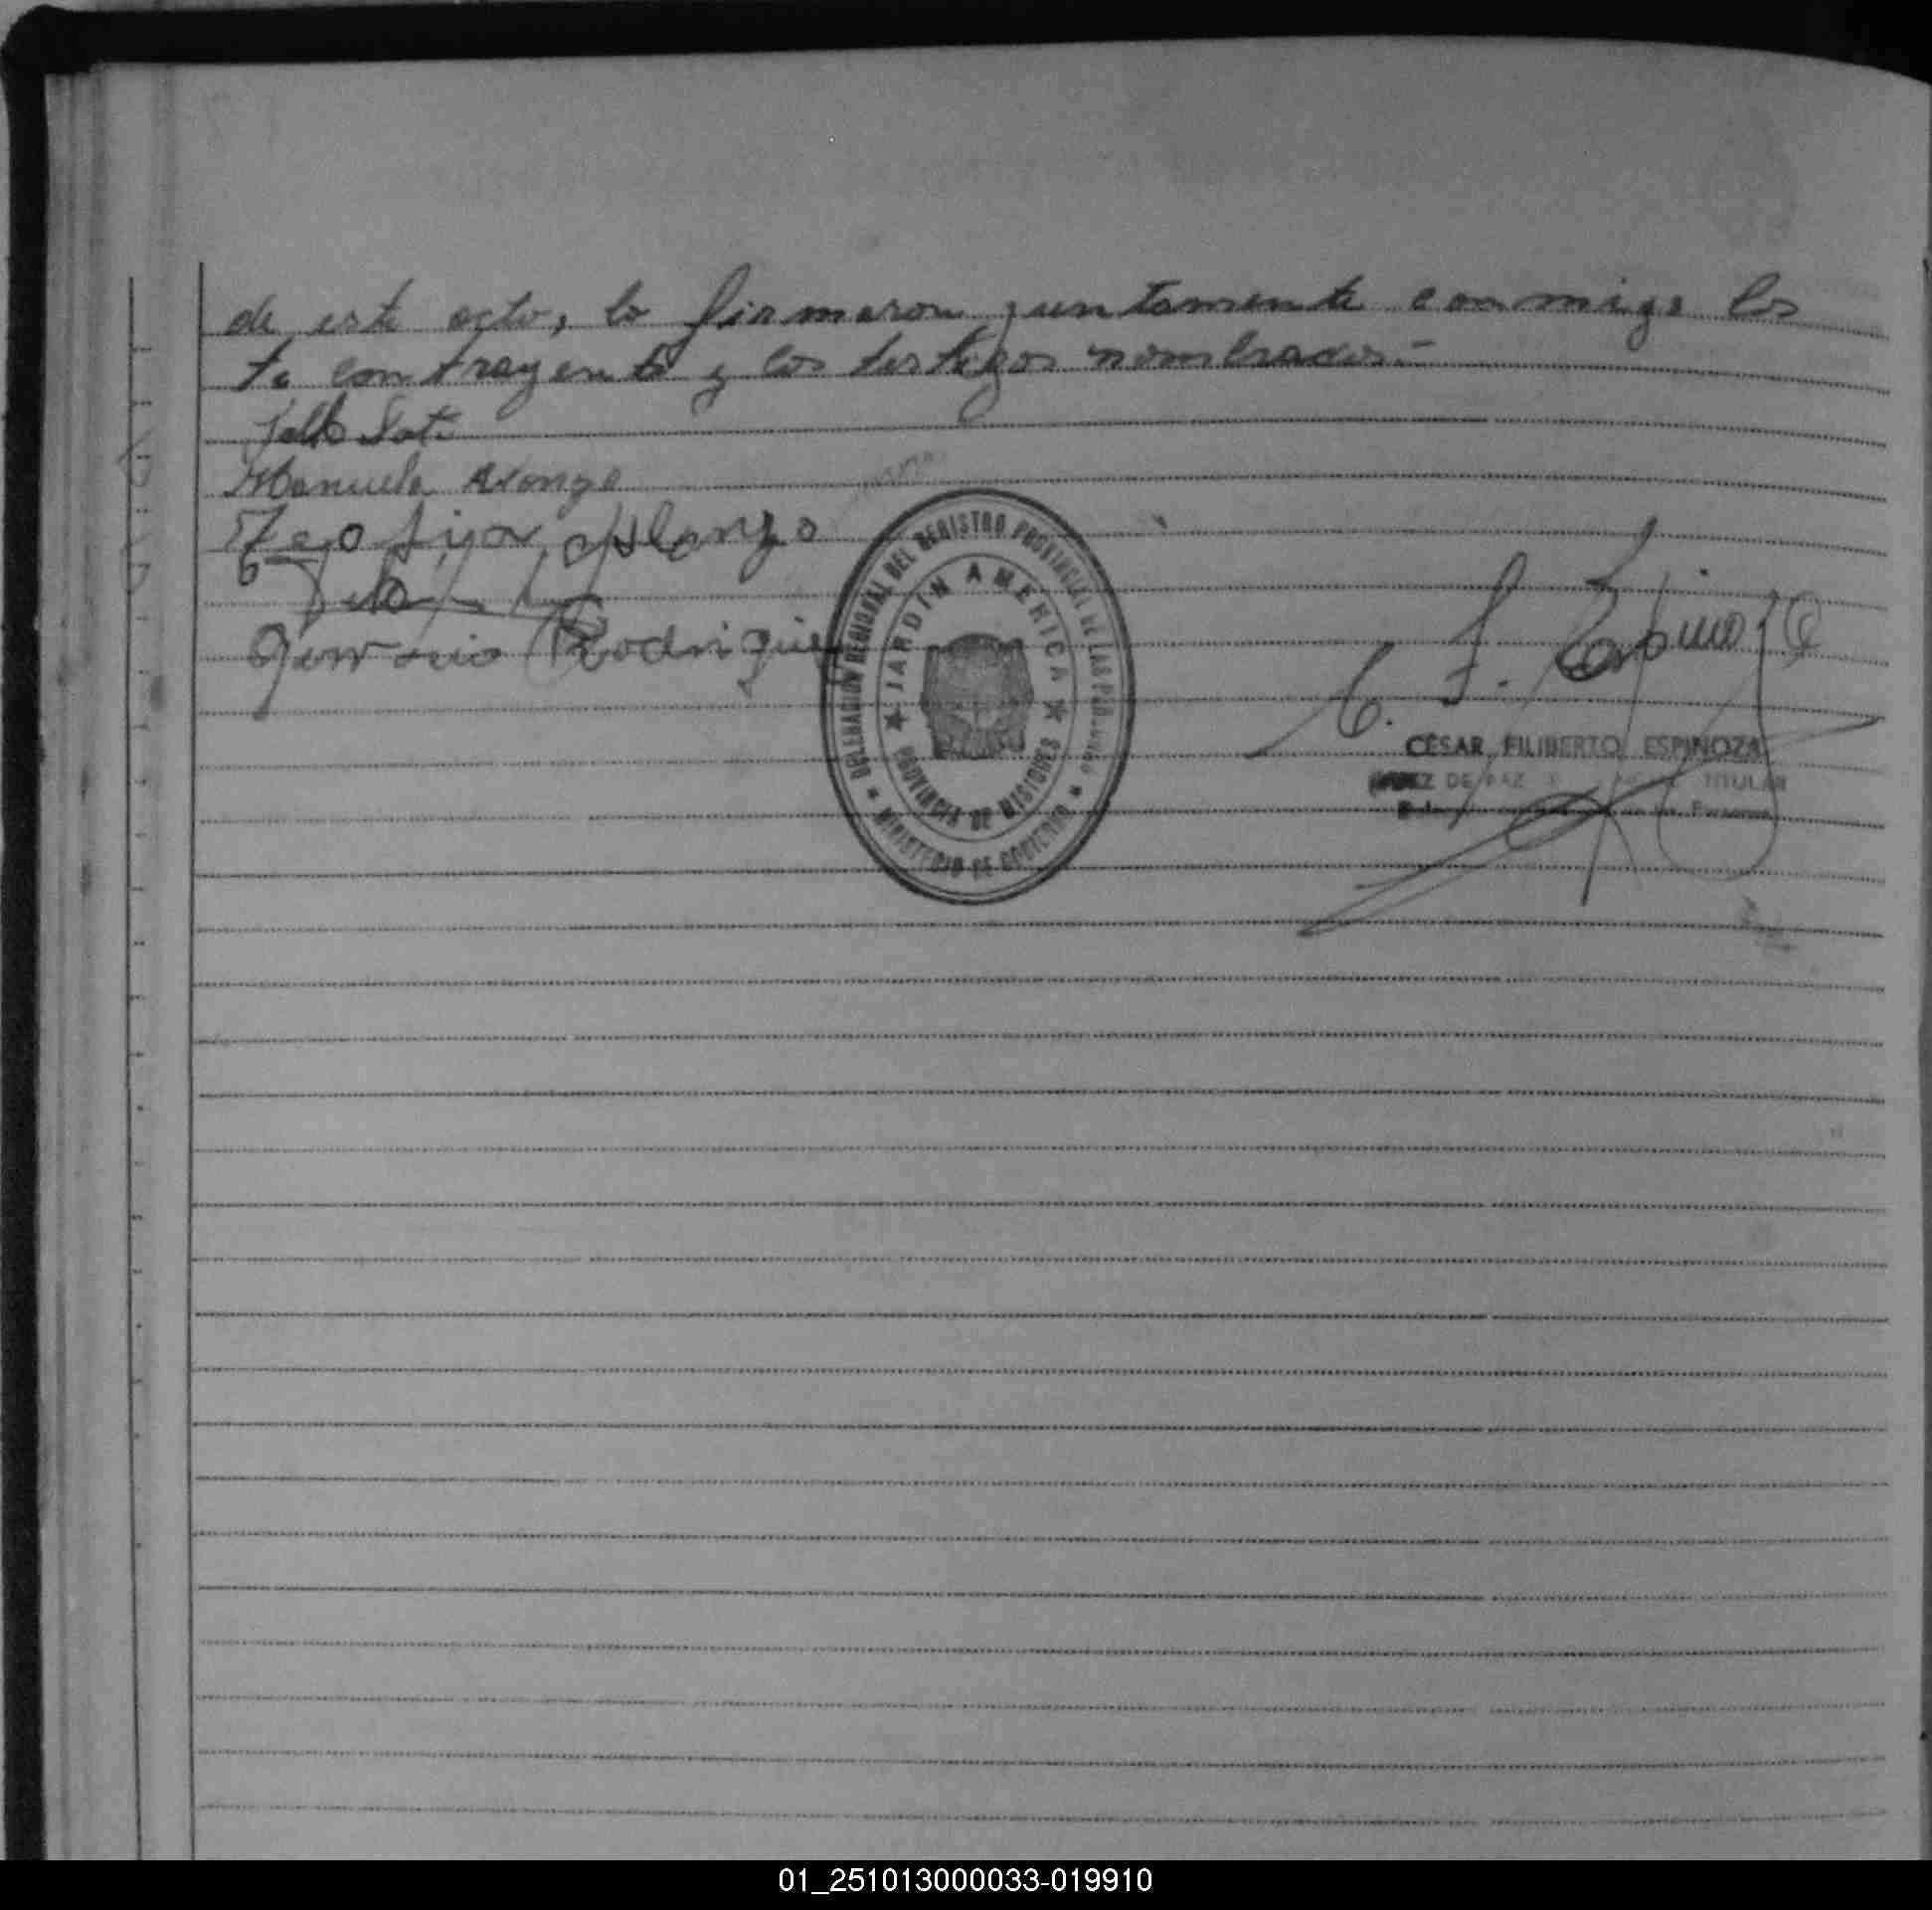 de este acto, lo firmaron juntamente conmigo los
contrayente y los testigos nombrados.-
Manuela Alonzo
Alonzo
Rodriguez
C. F. Espinoza
DELEGACION REGIONAL DEL REGISTRO PROVINCIAL DE LAS PERSONAS
★ JARDIN AMERICA ★
PROVINCIA DE MISIONES
★ MINISTERIO DE GOBIERNO ★
CESAR FILIBERTO ESPINOZA
JUEZ DE PAZ TITULAR
01_251013000033-019910